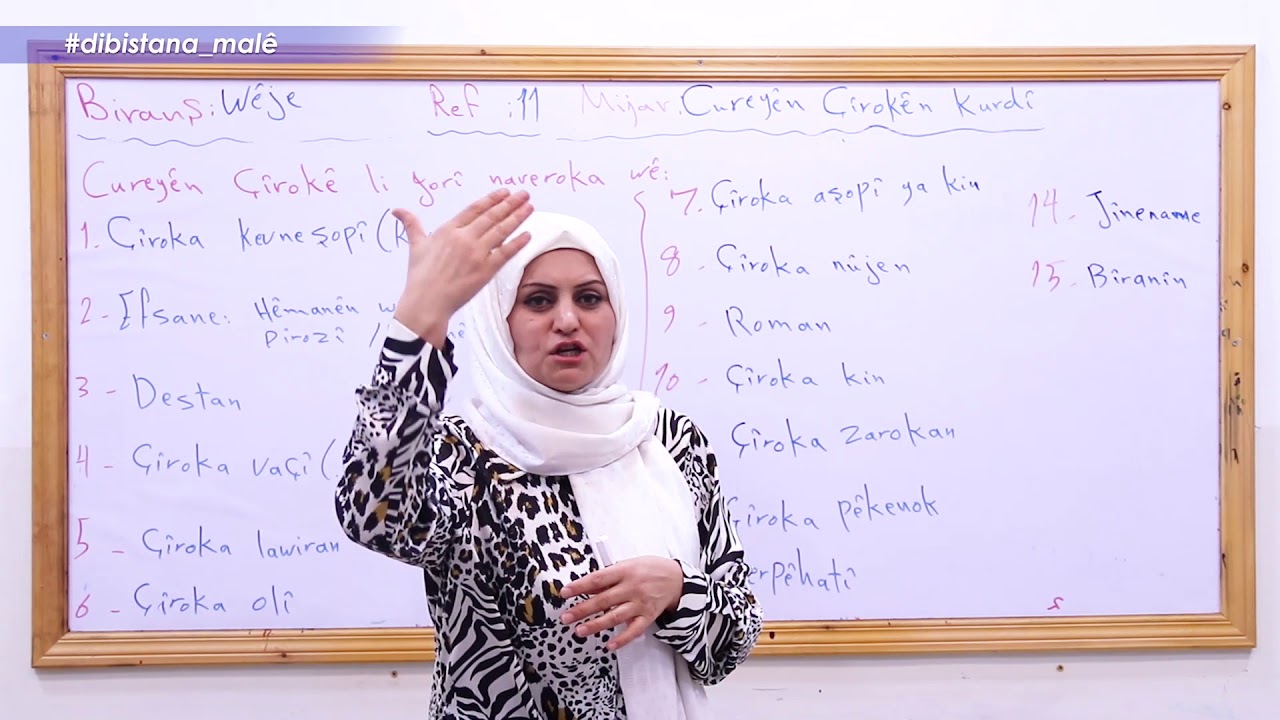 #dibistana_malê
Biranş: Wêje Ref :11 Mijar: Cureyên Çîrokên Kurdî
Cureyên Çîrokê li gorî naveroka wê:
1. Çîroka kevneşopî (K
2 - Efsane: Hêmanên w
pirozî /
3 - Destan
4 - Çîroka vaçî (
5 - Çîroka lawiran
6 - Çîroka olî
7. Çîroka aşopî ya kin
8 - Çîroka nûjen
9 - Roman
10 - Çîroka kin
Çîroka zarokan
Çîroka pêkenok
erpêhatî
14 - Jînename
15 - Bîranîn